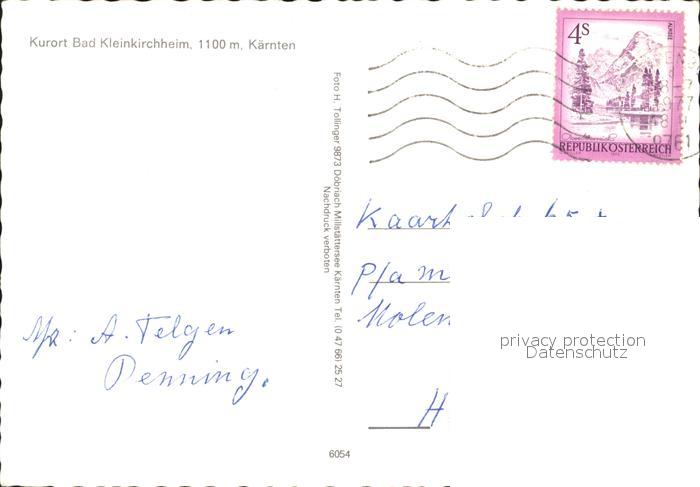 Kurort Bad Kleinkirchheim, 1100 m, Kärnten
4S
REPUBLIK ÖSTERREICH
9761
Foto H. Tollinger 9873 Döbriach Millstättersee Kärnten Tel. (0 47 66) 25 27
Nachdruck verboten
Kaart
p/a m
Molen
H
A. Telgen
Penning.
privacy protection
Datenschutz
6054